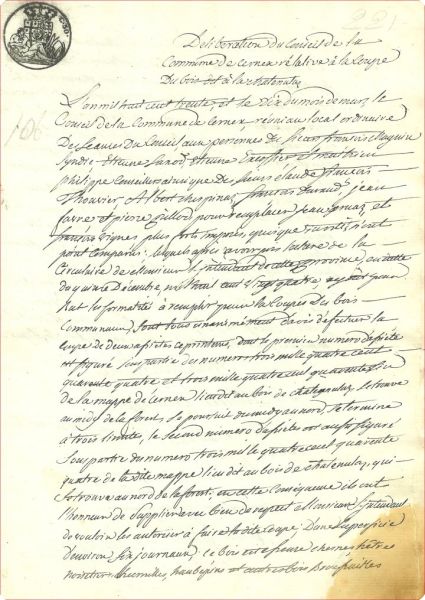 Deliberation du Conseil de la
Commune de Cernex relative à la Coupe
Du bois dit à la chatenulaz
L'an mil huit cent trente, et le dix du mois de mars, le
Conseil de la Commune de Cernex réuni au local ordinaire
des séances du Conseil aux personnes des sieurs françois
Syndic etienne etienne et mathieu
philippe Conseillers ainsi que des sieurs claude françois
Thouvier, Albert chuspinaz, françois Duraud, jean
favre et pierre pour remplacer jean et
françois vignes plus forts imposés, quoique n'ont
point Comparus: lesquels après avoir pris lecture de la
Circulaire de Monsieur l'Intendant de cette province, en datte
du quinze Décembre, mil huit cent vingt quatre, ayant pour
but les formalités à remplir pour la Coupe des bois
Communaux, sont tous unanimément d'avis d'effectuer la
Coupe de deux assiétes ce printems, dont le premier numéro d'assiéte
est figuré sous partie des numéros trois mille quatre cent
quarante quatre et trois mille quatre cent quarante
de la mappe de Cernex lieu dit au bois de chatenulaz, se trouve
au midy de la forest, se poursuit du midy au nord, se termine
à trois limites, le Second numéro d'assiéte est aussi figuré
Sous partie du numéro trois mille quatre cent quarante
quatre de la dite mappe lieu dit au bois de chatenulaz, qui
se trouve au nord de la forest. en cette Conséquence ils ont
l'honneur de Supplier avec bien du respect Monsieur l'Intendant
de vouloir les autoriser à faire la dite Coupe, Dans la Superficie
d'environ Six journaux, ce bois est essence chesnes hêtres
noisetiers charmilles, haubepins et autres bois